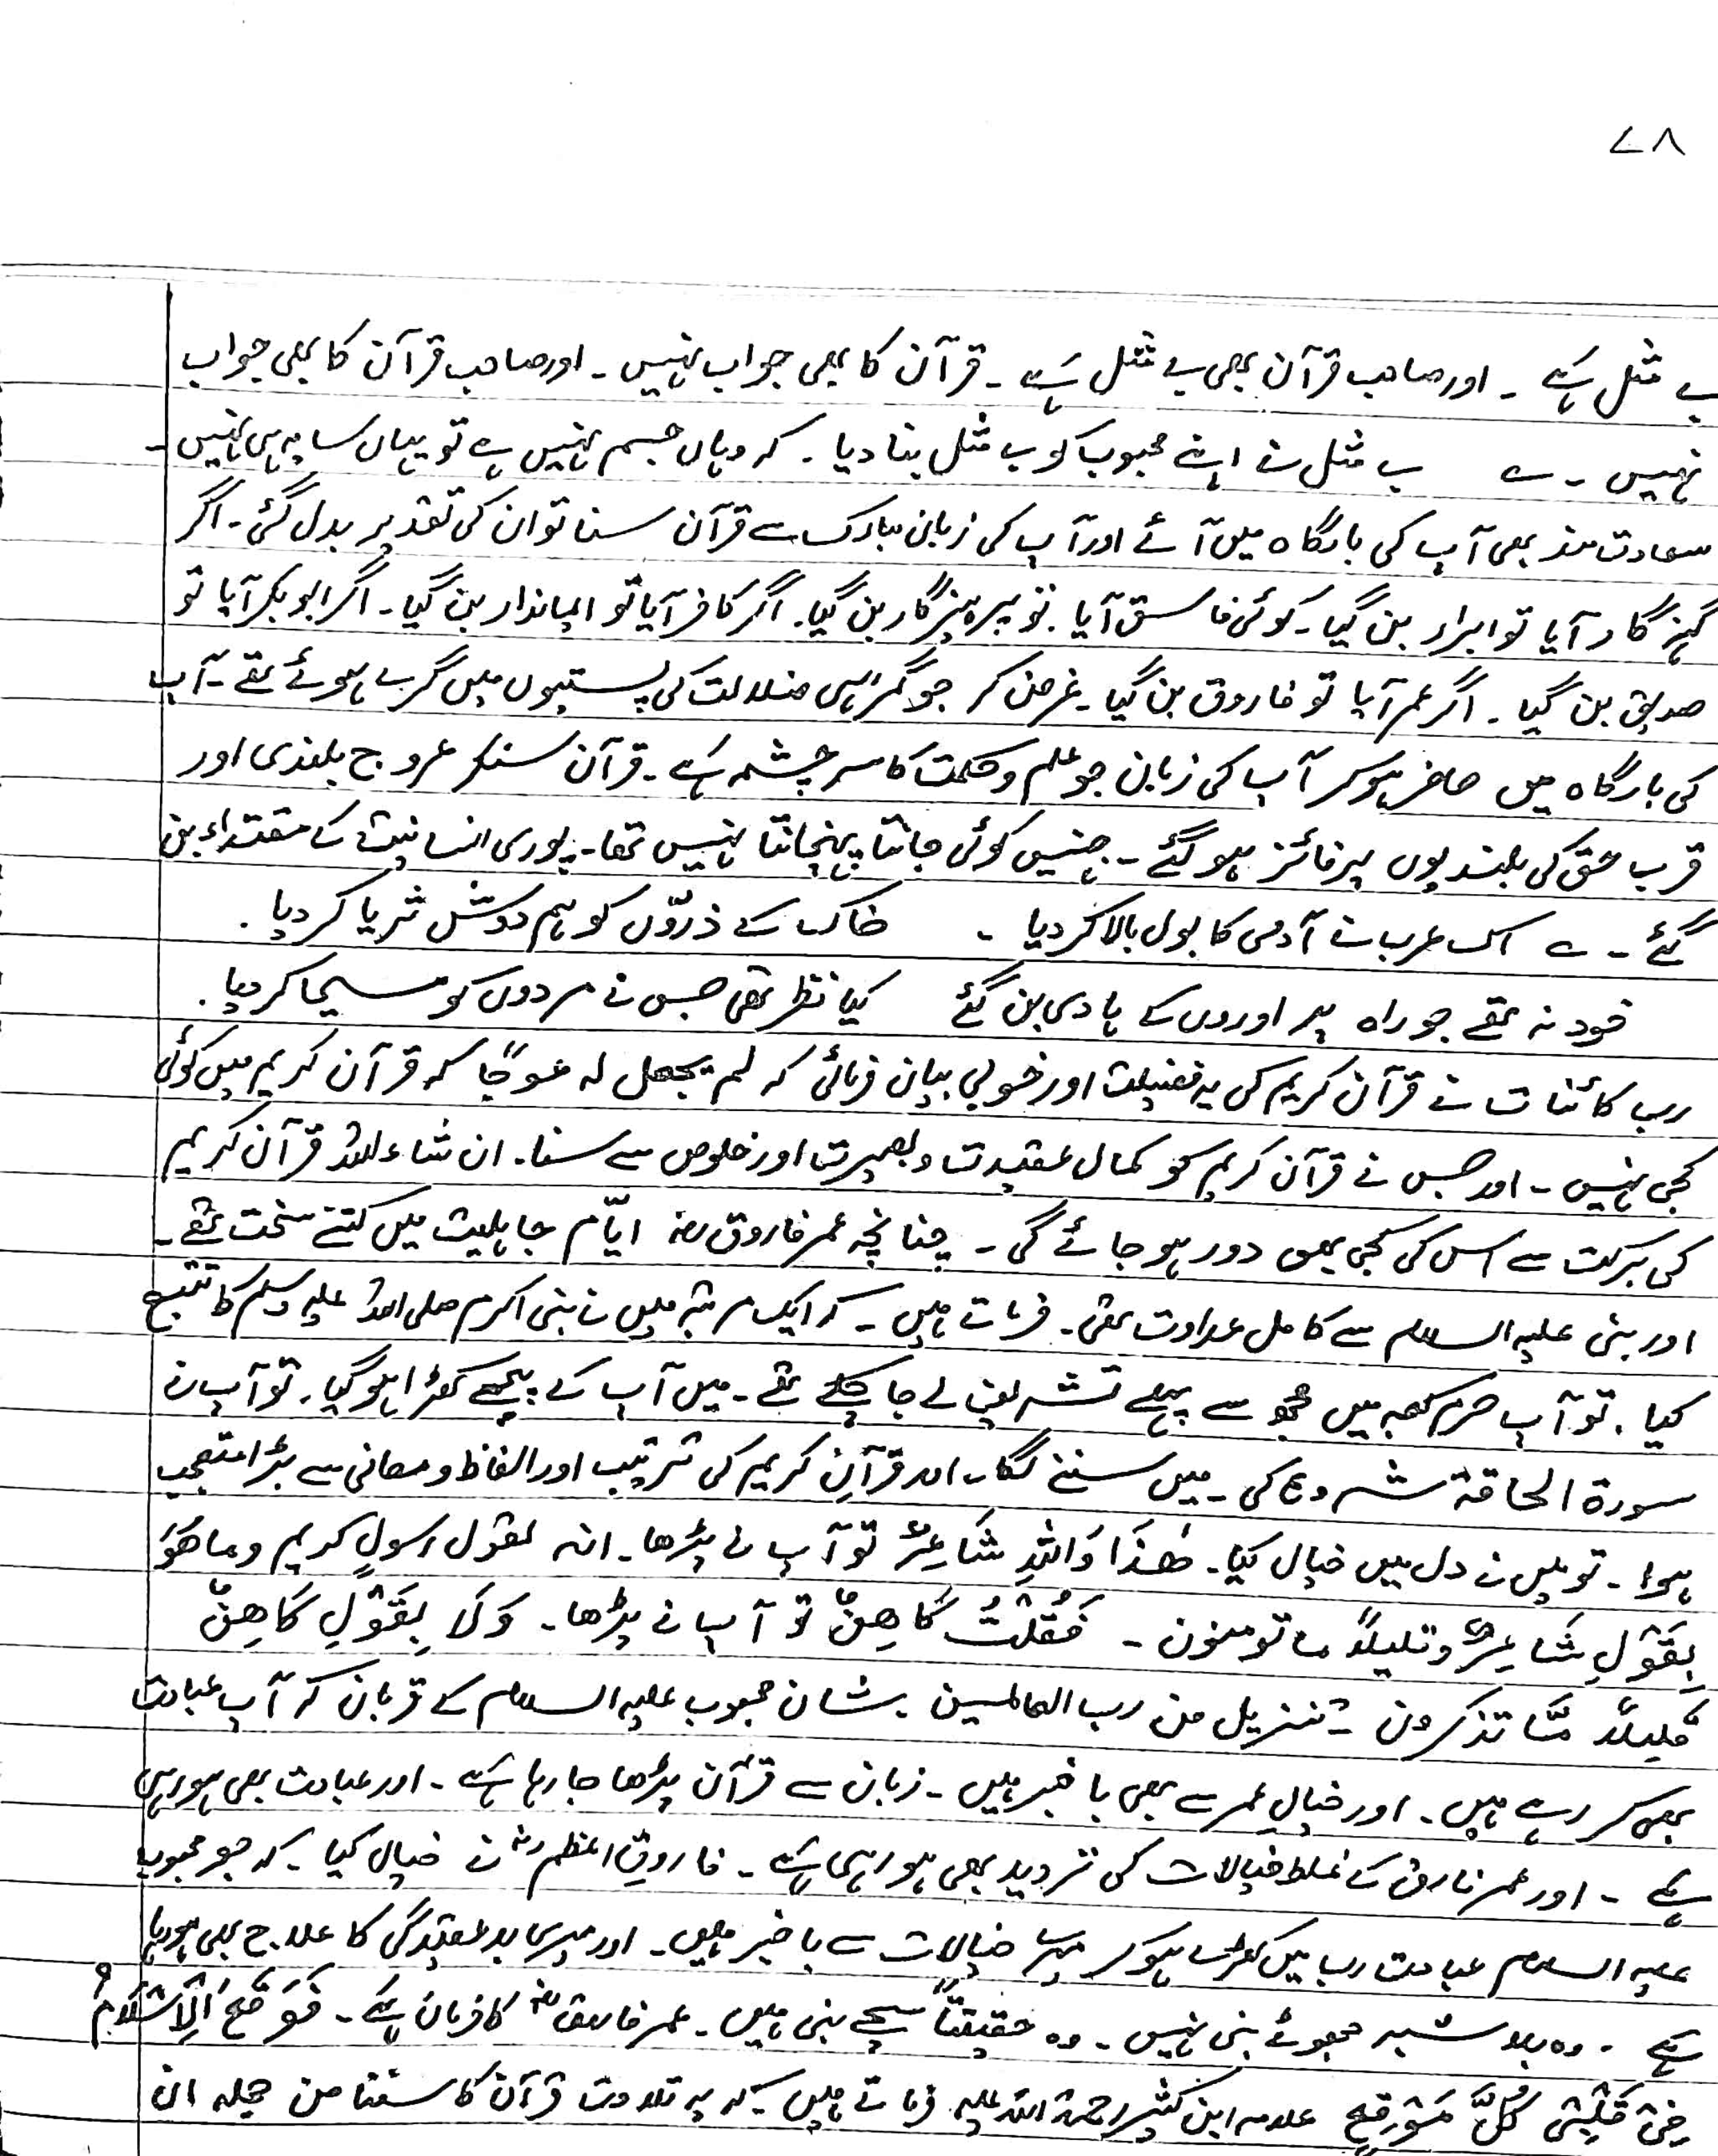 ۷۸
بے مثل ہے ۔ اور صاحب قرآن بھی بے مثل ہے ۔ قرآن کا بھی جواب نہیں ۔ اور صاحب قرآن کا بھی جواب
نہیں ۔ ے بے مثل نے اپنے محبوب کو بے مثل بنا دیا ۔ کہ وہاں جسم نہیں ہے تو یہاں سایہ ہی نہیں ۔
سعادت مند بھی آپ کی بارگاہ میں آئے اور آپ کی زبان مبارک سے قرآن سنا تو ان کی تقدیر بدل گئی ۔ اگر
گنہگار آیا تو ابرار بن گیا ۔ کوئی فاسق آیا . تو پرہیزگار بن گیا . اگر کافر آیا تو ایماندار بن گیا ۔ اگر ابوبکر آیا تو
صدیق بن گیا ۔ اگر عمر آیا تو فاروق بن گیا ۔ غرض کہ جو گمراہی ضلالت کی پستیوں میں گرے ہوئے تھے ۔ آپ
کی بارگاہ میں حاضر ہوکر آپ کی زبان جو علم و حکمت کا سرچشمہ ہے ۔ قرآن سنکر عروج بلندی اور
قرب حق کی بلندیوں پر فائز ہو گئے ۔ جنہیں کوئی جانتا پہنچانتا نہیں تھا ۔ پوری انسانیت کے مقتداء بن
گئے ۔ ے اک عرب نے آدمی کا بول بالا کر دیا ۔ خاک کے ذرّوں کو ہم دوش ثریا کر دیا .
خود نہ تھے جو راہ پر اوروں کے ہادی بن گئے کیا نظر تھی جس نے مردوں کو مسیحا کر دیا .
رب کائنات نے قرآن کریم کی یہ فضیلت اور خوبی بیان فرمائی کہ لم یجعل لہ عوجًا کہ قرآن کریم میں کوئی
کجی نہیں ۔ اور جس نے قرآن کریم کو کمال عقیدت و بصیرت اور خلوص سے سنا ۔ ان شاءاللہ قرآن کریم
کی برکت سے اس کی کجی بھی دور ہو جائے گی ۔ چنانچہ عمر فاروق رضہ ایّام جاہلیت میں کتنے سخت تھے ۔
اور نبی علیہ السلام سے کامل عداوت تھی ۔ فرماتے ہیں ۔ کہ ایک مرتبہ میں نے نبی اکرم صلی اللہ علیہ وسلم کا تتبع
کیا . تو آپ حرم کعبہ میں مجھ سے پہلے تشریف لے جا چکے تھے ۔ میں آپ کے پیچھے کھڑا ہو گیا . تو آپ نے
سورۃ الحاقۃ شروع کی ۔ میں سننے لگا ۔ اور قرآنِ کریم کی ترتیب اور الفاظ و معانی سے بڑا متعجب
ہوا ۔ تو میں نے دل میں خیال کیا ۔ ھٰذَا وَاللہِ شَاعِرٌ تو آپ نے پڑھا ۔ انہ لقول رسولٍ کریم وما ھُوَ
بِقَوْلِ شَاعِرٍ وقلیلًا ما تومنون ۔ فَقُلْتُ کَاھِنٌ تو آپ نے پڑھا ۔ وَلَا بِقَوْلِ کَاھِنٍ
قَلِیلًا مَّا تذکرون تنزیل من رب العالمین . شان محبوب علیہ السلام کے قربان کہ آپ عبادت
بھی کر رہے ہیں . اور خیالِ عمر سے بھی باخبر ہیں ۔ زبان سے قرآن پڑھا جا رہا ہے ۔ اور عبادت بھی ہو رہی
ہے ۔ اور عمر فاروق کے غلط خیالات کی تردید بھی ہو رہی ہے ۔ فاروقِ اعظم رضہ نے خیال کیا ۔ کہ جو محبوب
علیہ السلام عبادت رب میں کھڑے ہو کر میرے خیالات سے باخبر ہیں ۔ اور میری بدعقیدگی کا علاج بھی ہو رہا
ہے ۔ وہ بلاشبہ جھوٹے نبی نہیں ۔ وہ حقیقتًا سچے نبی ہیں ۔ عمر فاروق رضہ کا فرمان ہے ۔ فَوَقَعَ الْاِسْلَامُ
فِیْ قَلْبِیْ کُلَّ مَوْقِعٍ علامہ ابن کثیر رحمۃ اللہ علیہ فرماتے ہیں ۔ کہ یہ تلاوت قرآن کا سننا من جملہ ان